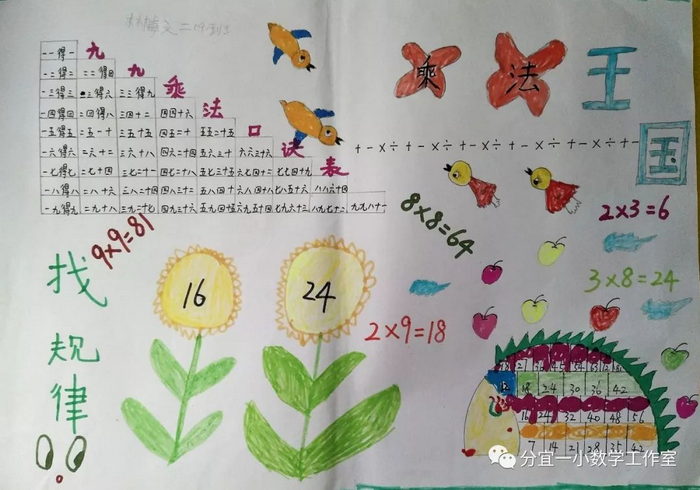 林梅文二（4）班
九九乘法口诀表
一一得一
一二得二 二二得四
一三得三 二三得六 三三得九
一四得四 二四得八 三四十二 四四十六
一五得五 二五一十 三五十五 四五二十 五五二十五
一六得六 二六十二 三六十八 四六二十四 五六三十 六六三十六
一七得七 二七十四 三七二十一 四七二十八 五七三十五 六七四十二 七七四十九
一八得八 二八十六 三八二十四 四八三十二 五八四十 六八四十八 七八五十六 八八六十四
一九得九 二九十八 三九二十七 四九三十六 五九四十五 六九五十四 七九六十三 八九七十二 九九八十一
乘法王国
+-×÷+-×÷+-×÷+-×÷+-×÷+-×÷+-
9×9=81
8×8=64
2×3=6
3×8=24
2×9=18
找规律
16
24
24 30 36 42
16 24 32 40 48 56
7 14 21 28 35 42
分宜一小数学工作室